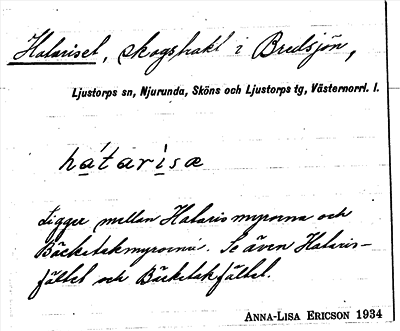 Hatariset, skogstrakt i Bredsjön,
Ljustorps sn, Njurunda, Sköns och Ljustorps tg, Västernorrl. l.
hátarisæ
Ligger mellan Hatarismyrorna och
Bäcketakmyrorna. Se även Hataris-
fältet och Bäcketakfältet.
ANNA-LISA ERICSON 1934